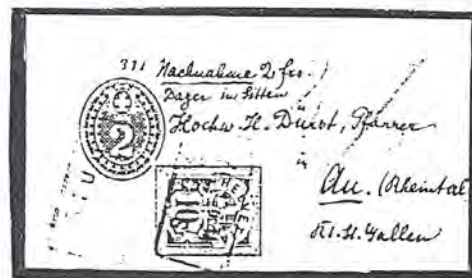 311 Nachnahme 2 frs.
Dager in Sitten
2
Hochw. H. Dürst, Pfarrer
in
Au. (Rheintal
Kt. St. Gallen
HELVETIA
10